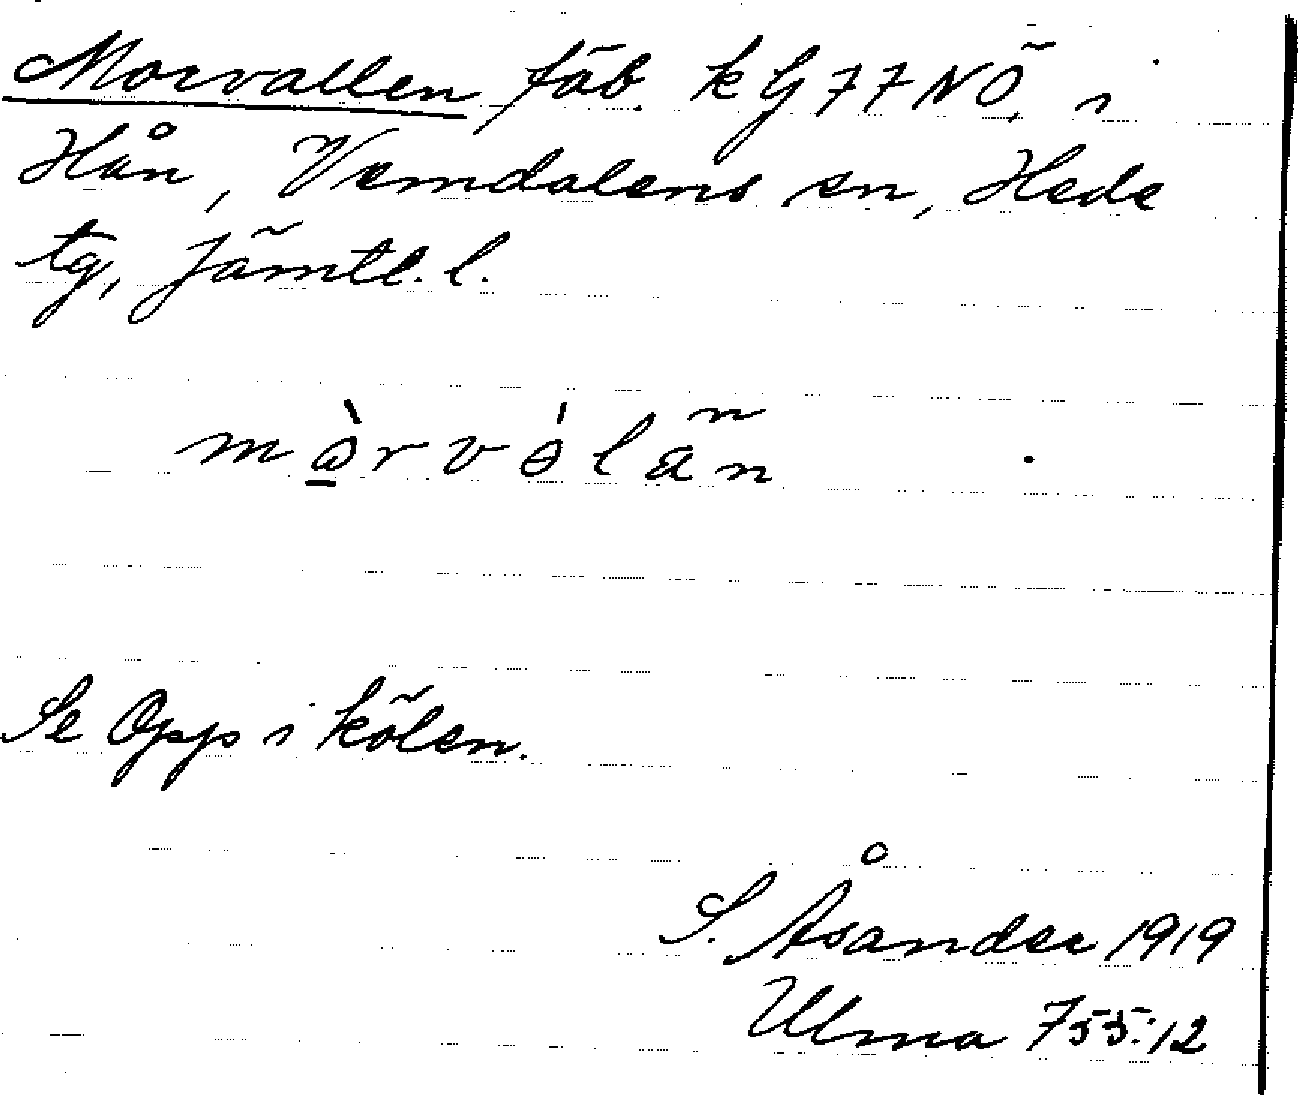 Morvallen fäb. kG77NÖ, i
Hån, Vemdalens sn, Hede
tg, Jämtl. l.
Se Opp i kölen.
S. Åsander 1919
Ulma 755:12